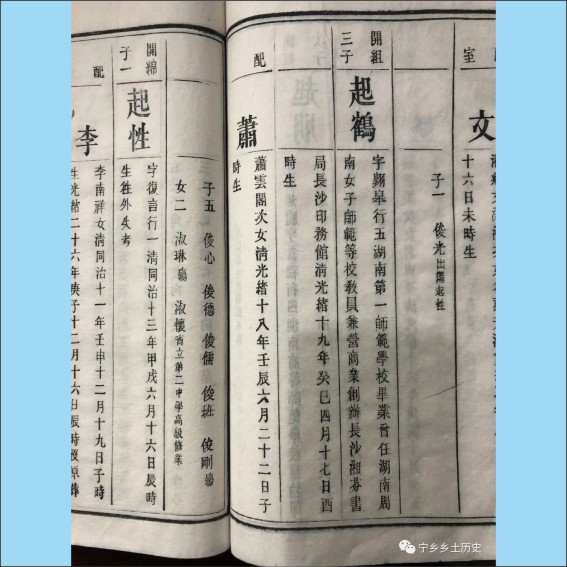 室
文
十六日未時生
子一 俊光出繼起性
開組
三子
起鶴
字翺皋行五湖南第一師範學校畢業曾任湖南周
南女子師範等校教員兼營商業創辦長沙湘芬書
局長沙印務館清光緒十九年癸巳四月十七日酉
時生
配
蕭
蕭雲閣次女清光緒十八年壬辰六月二十二日子
時生
子五 俊心 俊德 俊儒 俊班 俊剛殤
女二 淑琳殤 淑懷省立第二中學高級修業
開綿
子一
起性
字復言行一清同治十三年甲戌六月十六日辰時
生往外失考
配
李
李南祥女清同治十一年壬申十二月十九日子時
生光緒二十六年庚子十二月十六日辰時歿原葬
宁乡乡土历史